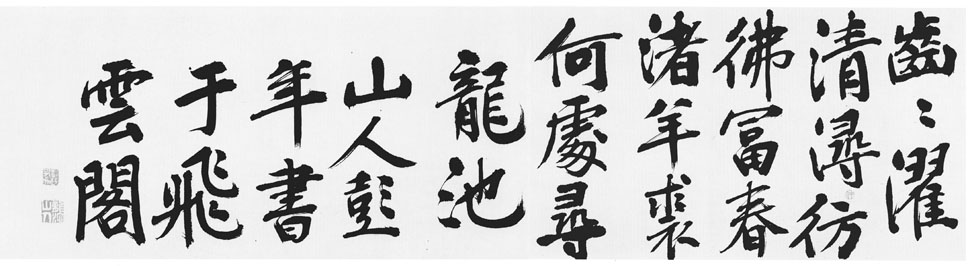 齒〻濯
清潯彷
彿富春
渚羊裘
何處尋
龍池
山人彭
年書
于飛
雲閣